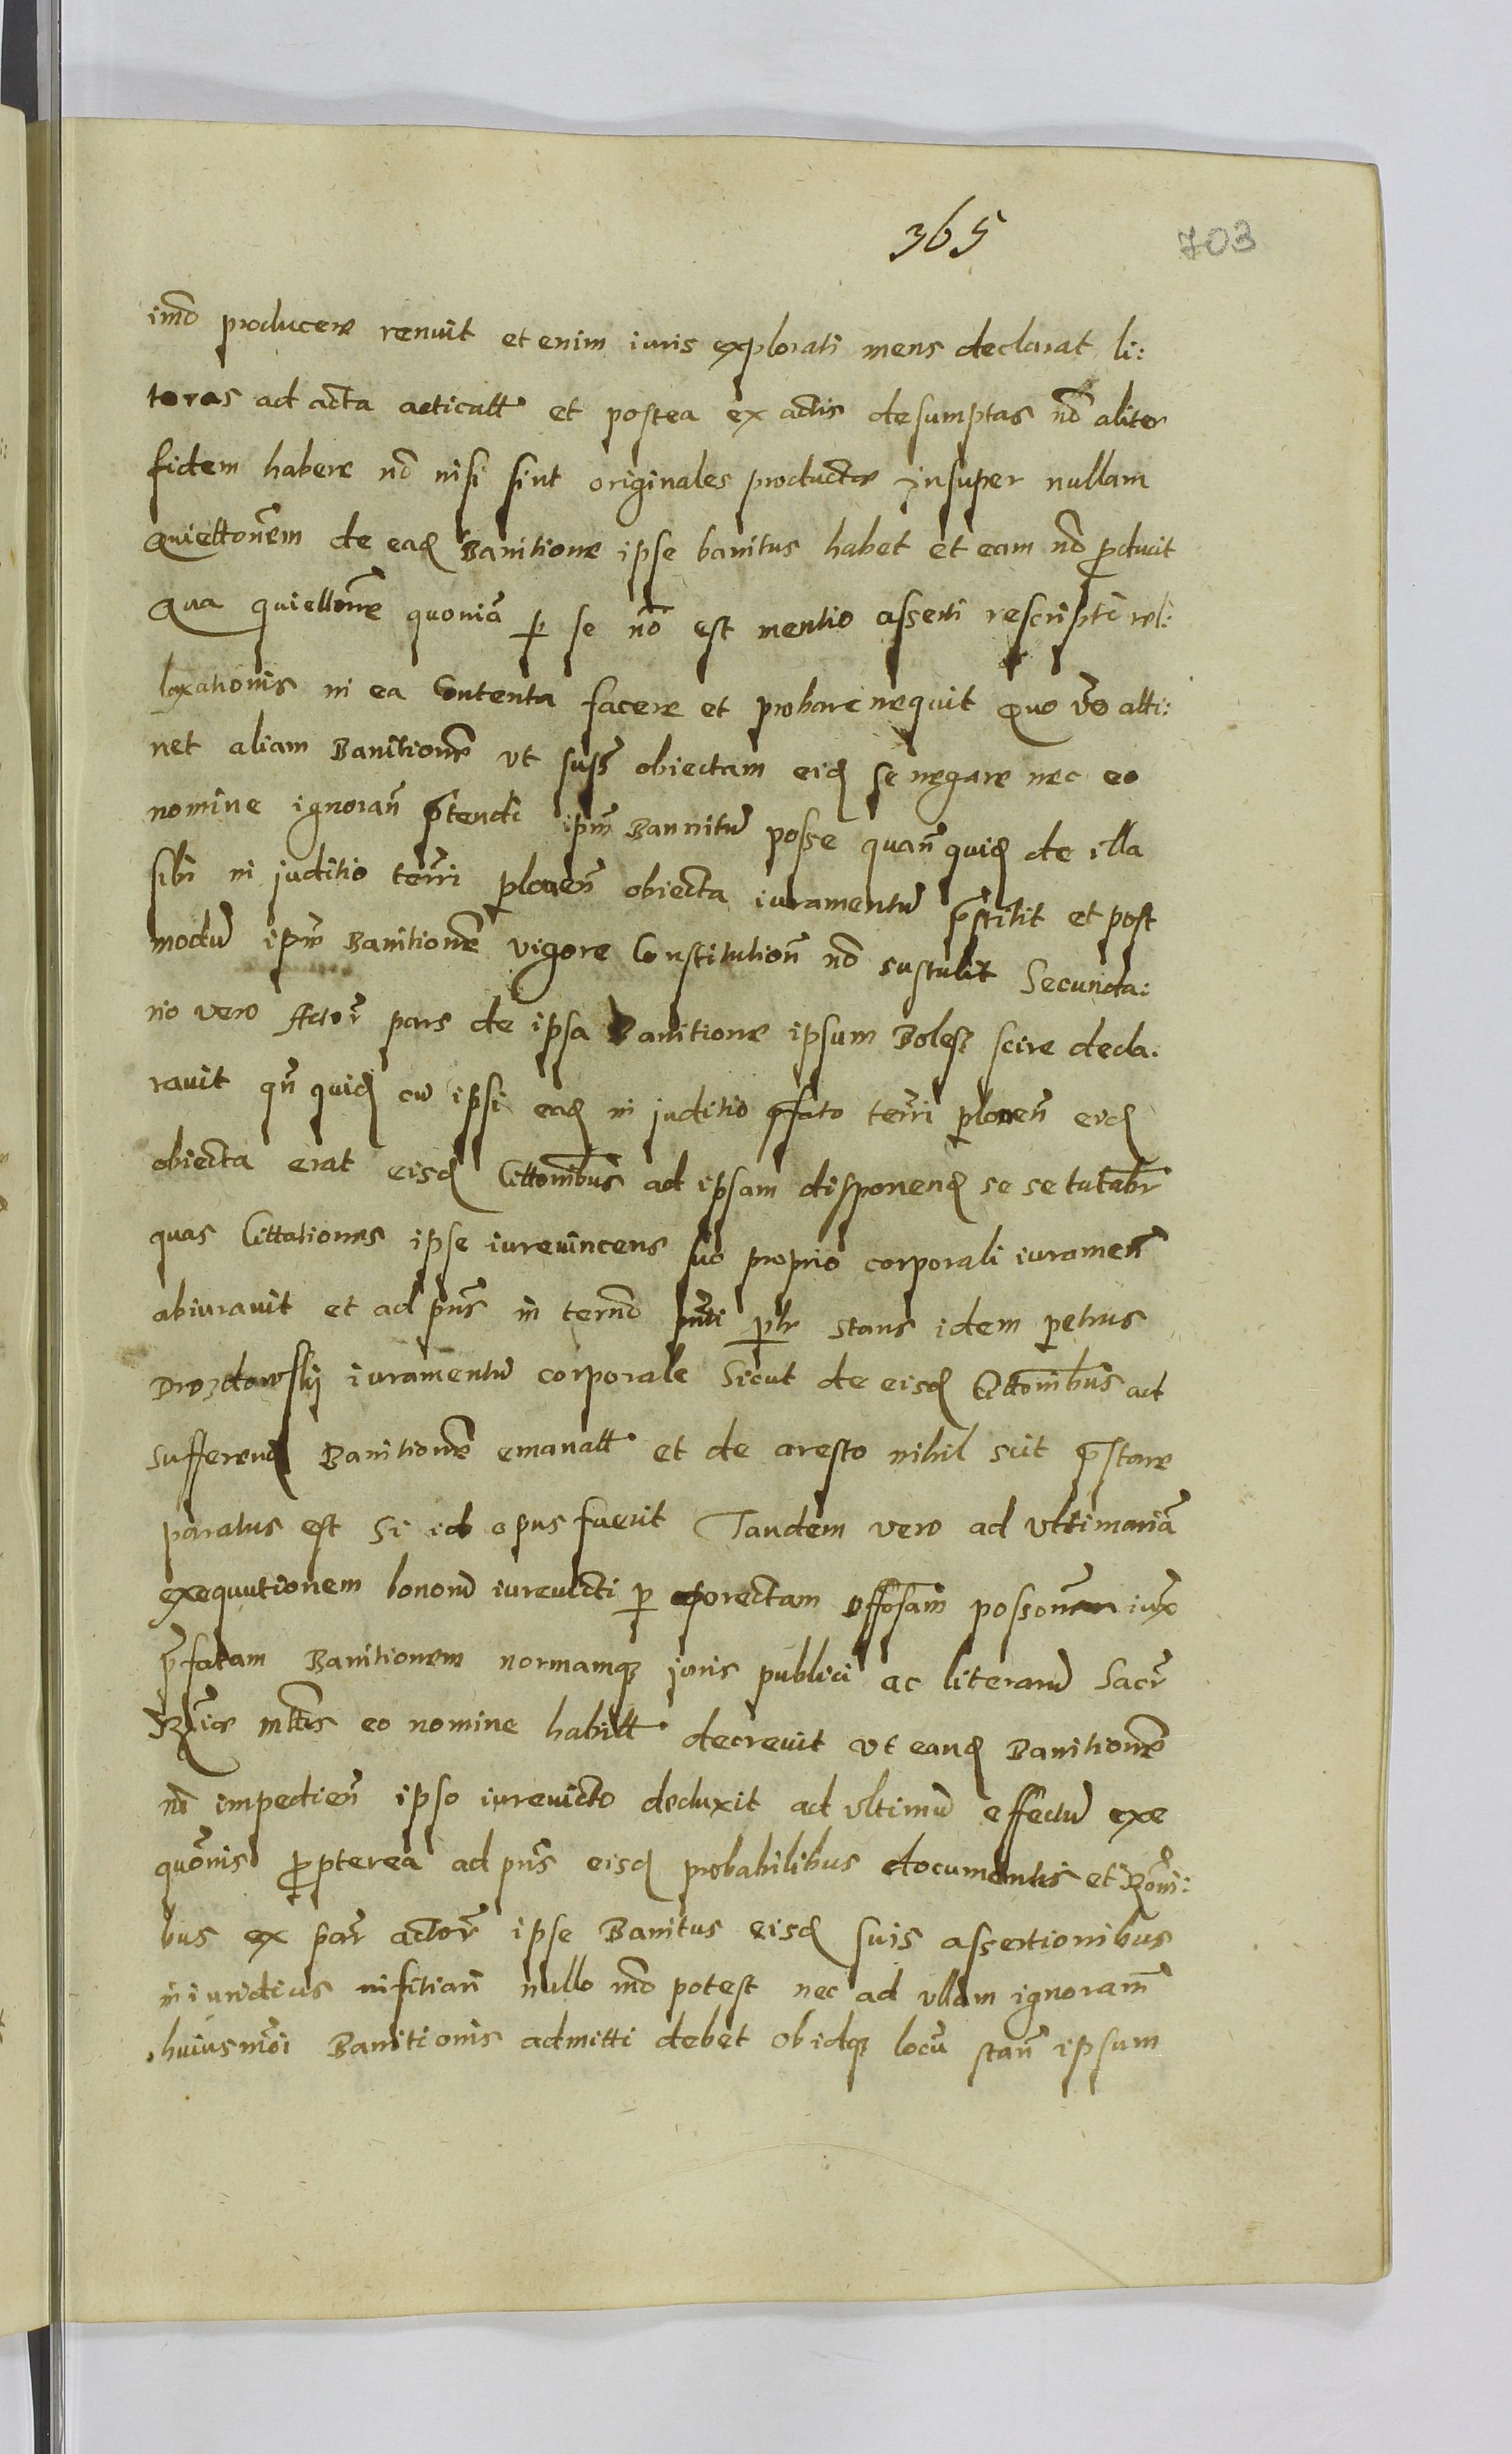 365
703
imo producere renuit et enim iuris explorati mens declarat li:
teras ad acta acticatt et postea ex actis desumptas no aliter
fidem habere no nisi sint originales productae insuper nullam
Quiettonem de ead Banitione ipse banitus habet et eam no producit
Qua quiettone quonia p se no est mentio asserti rescripti rel:
laxationis in ea Contenta facere et probare nequit Quo vo atti:
net aliam Banitione vt suss obiectam eid se negare nec eo
nomine ignoran ptendi ipm Bannitu posse quan quid de illa
sibi in juditio terri plocen obiecta iuramentu pstitit et post
modu ipm Banitione vigore Constitution no sustulit Secunda:
rio vero Actor pars de ipsa Banitione ipsum Bolesz scire decla:
ravit qn quid cu ipsi ead in juditio pfato terri plocen eid
obiecta erat eisd Cittonibus ad ipsam disponend se se tutabr
quas Cittationes ipse iurevincens suo proprio corporali iuramen
abiuravit et ad pns in termo pnti plr stans idem petrus
Drozdowskij iuramentu corporale Sicut de eisd Cittonibus ad
sufferend Banitione emanatt et de aresto nihil scit pstare
paratus est Si id opus fuerit Tandem vero ad vltimaria
exequutionem bonoru iurevicti p porectam offosam possonem iux
pfatam Banitionem normamq juris publici ac literaru Sacr
Rgiae mttis eo nomine habitt decrevit vt eand Banitione
no impedien ipso iurevicto deduxit ad vltimu effectu exe
quonis propterea ad pns eisd probabilibus documentis et Roni:
bus ex par actor ipse Banitus eisd suis assertionibus
iniuridicis infitiari nullo mo potest nec ad vllam ignoram
huiusmoi Banitionis admitti debet Ob idq locu stan ipsum